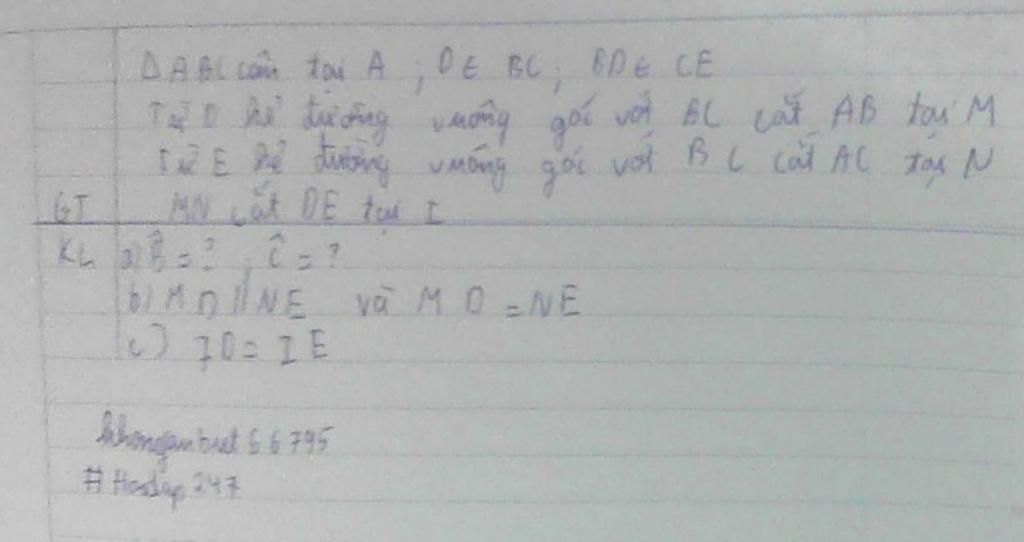 Δ ABC cân tại A ; D ∈ BC ; BD ∈ CE
Từ D kẻ đường vuông góc với BC cắt AB tại M
Từ E kẻ đường vuông góc với BC cắt AC tại N
GT MN cắt DE tại I
KL a) B̂ = ? ; Ĉ = ?
b) MD // NE và MD = NE
c) ID = IE
khongambiet66795
#Hoidap247